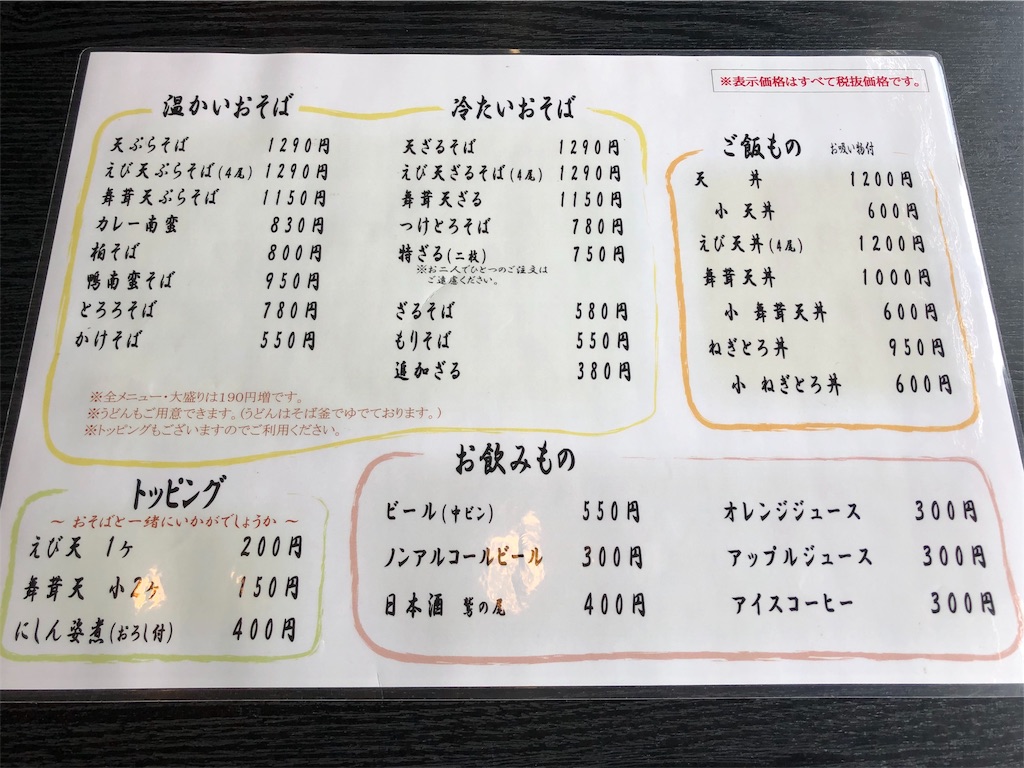 ※表示価格はすべて税抜価格です。
温かいおそば
天ぷらそば 1290円
えび天ぷらそば(4尾) 1290円
舞茸天ぷらそば 1150円
カレー南蛮 830円
柏そば 800円
鴨南蛮そば 950円
とろろそば 780円
かけそば 550円
冷たいおそば
天ざるそば 1290円
えび天ざるそば(4尾) 1290円
舞茸天ざる 1150円
つけとろそば 780円
特ざる(二枚) 750円
※お二人でひとつのご注文は
ご遠慮ください。
ざるそば 580円
もりそば 550円
追加ざる 380円
※全メニュー・大盛りは190円増です。
※うどんもご用意できます。(うどんはそば釜でゆでております。)
※トッピングもございますのでご利用ください。
ご飯もの お吸い物付
天 丼 1200円
小 天丼 600円
えび天丼(4尾) 1200円
舞茸天丼 1000円
小 舞茸天丼 600円
ねぎとろ丼 950円
小 ねぎとろ丼 600円
トッピング
～ おそばと一緒にいかがでしょうか ～
えび天 1ヶ 200円
舞茸天 小2ヶ 150円
にしん姿煮(おろし付) 400円
お飲みもの
ビール(中ビン) 550円
ノンアルコールビール 300円
日本酒 鷲の尾 400円
オレンジジュース 300円
アップルジュース 300円
アイスコーヒー 300円